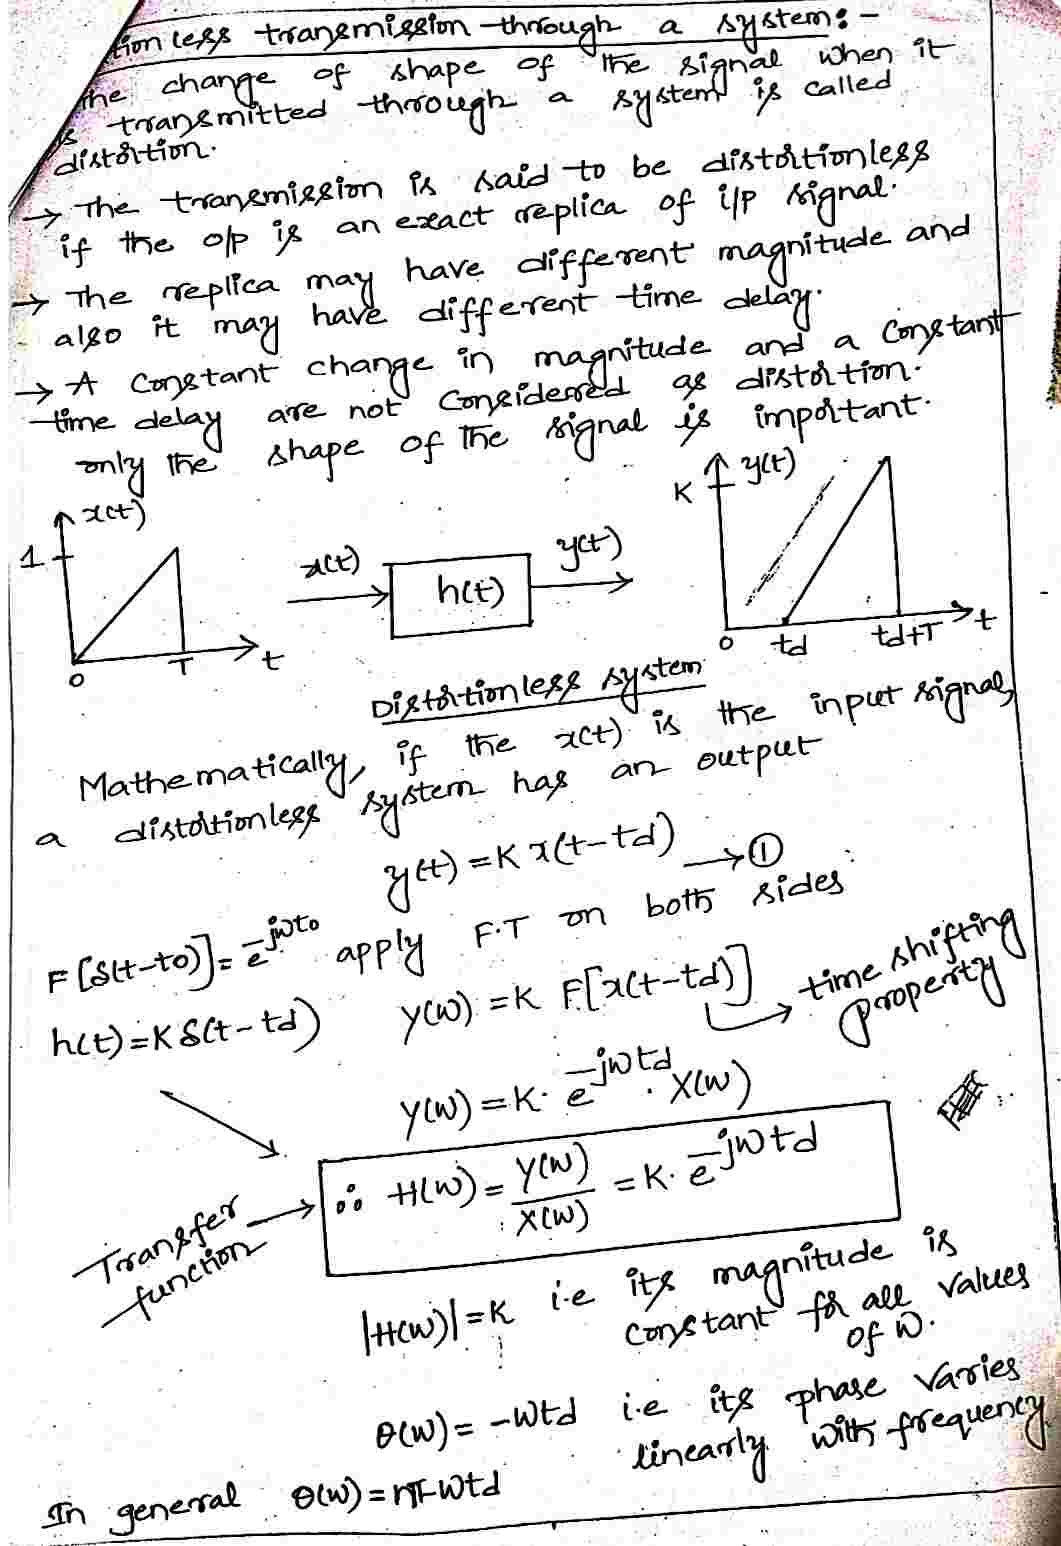 tionless transmission through a system:-
The change of shape of the signal when it
is transmitted through a system is called
distortion.
→ The transmission is said to be distortionless
if the o/p is an exact replica of i/p signal.
→ The replica may have different magnitude and
also it may have different time delay.
→ A constant change in magnitude and a constant
time delay are not considered as distortion.
only the shape of the signal is important.
x(t)
1
0
T
t
x(t)
h(t)
y(t)
K
y(t)
0
td
td+T
t
Distortionless system
Mathematically, if the x(t) is the input signal,
a distortionless system has an output
y(t) = K x(t-td) → ①
F[δ(t-to)] = e^-jωto apply F.T on both sides
h(t) = K δ(t-td)
Y(ω) = K F[x(t-td)] → time shifting
property
Y(ω) = K. e^-jωtd . X(ω)
Transfer
function → ∴ H(ω) = Y(ω)/X(ω) = K. e^-jωtd
|H(ω)| = K i.e its magnitude is
constant for all values
of ω.
θ(ω) = -ωtd i.e its phase varies
linearly with frequency
In general θ(ω) = nπ-ωtd